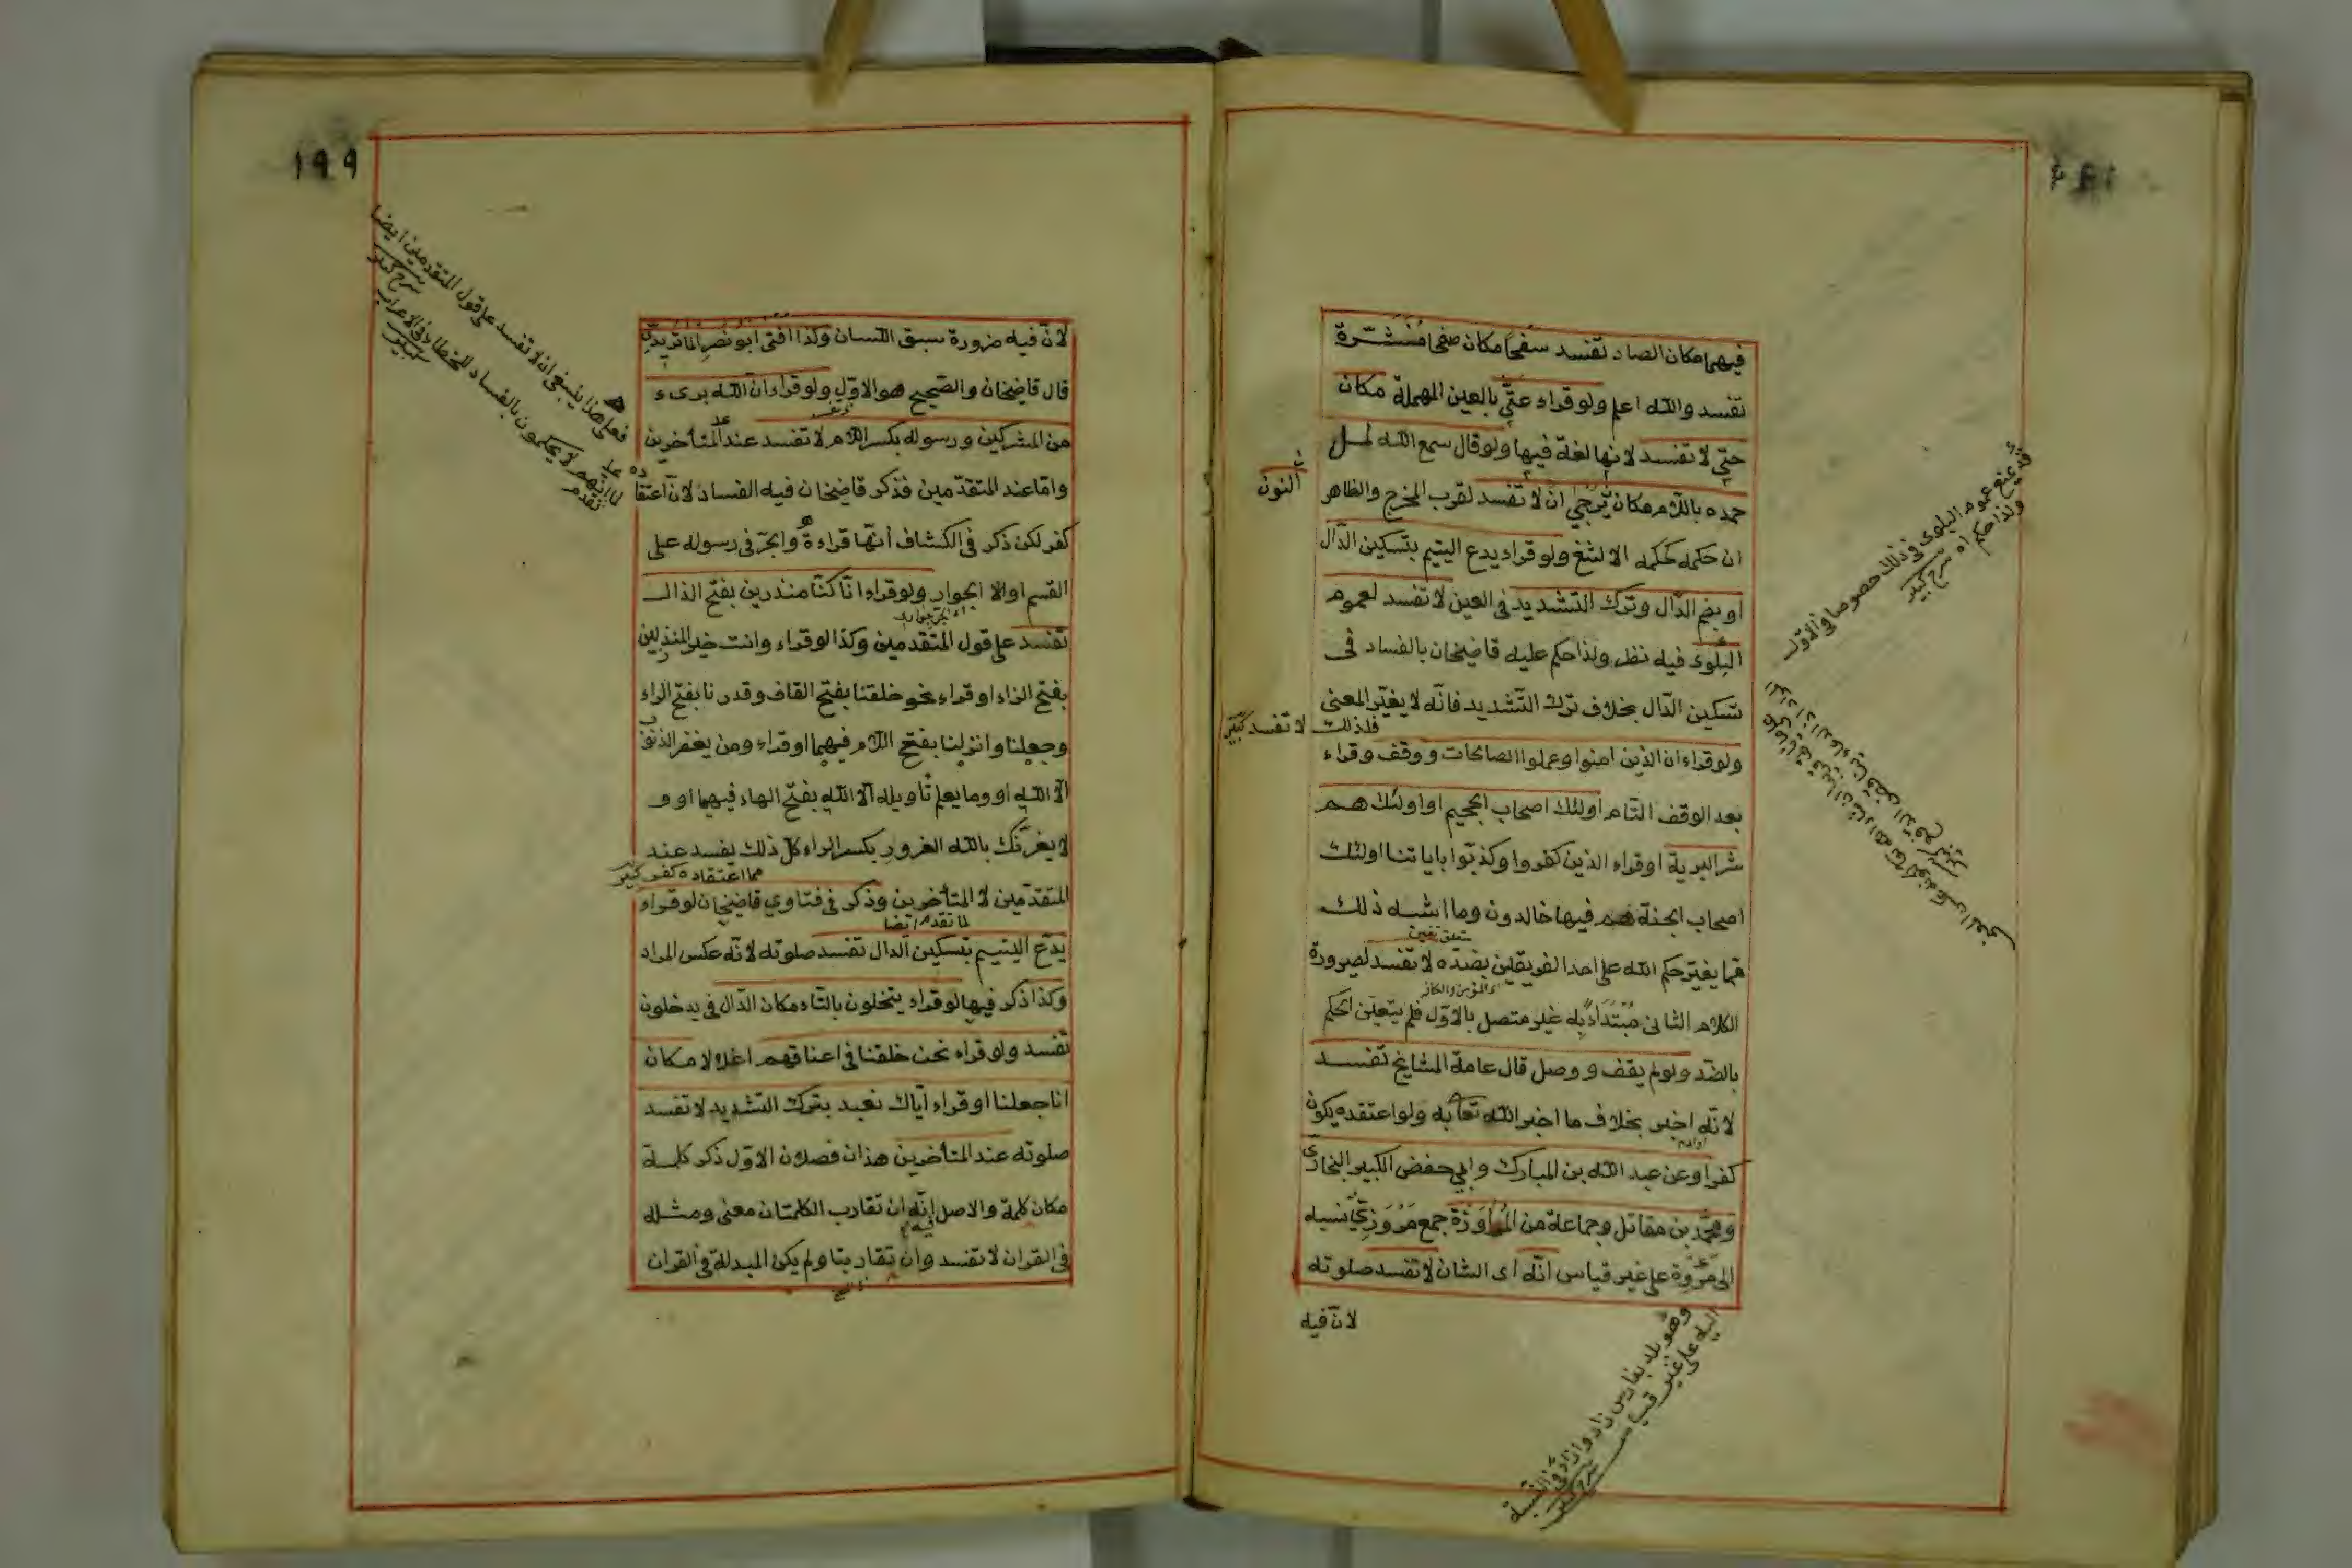 فيهما مكان الصاد تفسد سفحا مكان صفحا منشرة
تفسد والله اعلم ولو قراء عتى بالعين المهملة مكان
حتى لا تفسد لانها لغة فيها ولو قال سمع الله لمل
حمده باللام مكان النون يرجى ان لا تفسد لقرب المخرج والظاهر
ان حكمه كحكم الالثغ ولو قراء يدع اليتيم بتسكين الدال
او بضم الدال وترك التشديد في العين لا تفسد لعموم
البلوى فيه نظر ولذا حكم عليه قاضيخان بالفساد فى
تسكين الدال بخلاف ترك التشديد فانه لا يغير المعنى
فلذلك لا تفسد كبير
ولو قراء ان الذين امنوا وعملوا الصالحات ووقف وقراء
بعد الوقف التام اولئك اصحاب الجحيم او اولئك هم
شر البرية او قراء الذين كفروا وكذبوا باياتنا اولئك
اصحاب الجنة هم فيها خالدون وما اشبه ذلك
مما يغير حكم الله على احد الفريقين بضده لا تفسد لصيرورة
الكلام الثانى مبتداء به غير متصل بالاول فلم يتعين الحكم
بالضد ولو لم يقف ووصل قال عامة المشايخ تفسد
لانه اخبر بخلاف ما اخبر الله تعا به ولو اعتقده يكون
كفرا وعن عبد الله بن المبارك وابي حفص الكبير البخارى
ومحمد بن مقاتل وجماعة من المراوزة جمع مروزي نسبة
الى مروة على غير قياس انه اى الشان لا تفسد صلوته
لان فيه
وهو بلد بفارس زاد وا زاء فى النسبة
اليه على غير قياس شرح كبير
قد يمنع عموم البلوى فى ذلك خصوصا فى الاول
ولذا حكم اه شرح كبير
١٩٩
لان فيه ضرورة سبق اللسان وكذا افتى ابو نصر الماتريدي
قال قاضيخان والصحيح هو الاول ولو قراء ان الله برىء
من المشركين ورسوله بكسر اللام لا تفسد عند المتأخرين
واما عند المتقدمين فذكر قاضيخان فيه الفساد لان اعتقا
ده
كفر لكن ذكر فى الكشاف انها قراءة والجر فى رسوله على
القسم او الا الجوار ولو قراء انا كنا منذرين بفتح الذال
تفسد على قول المتقدمين وكذا لو قراء وانت خير المنزلين
بفتح الزاء او قراء نحو خلقنا بفتح القاف وقدرنا بفتح الراء
وجعلنا وانزلنا بفتح اللام فيهما او قراء ومن يغفر الذنوب
الا الله او وما يعلم تأويله الا الله بفتح الهاء فيهما او و
لا يغرنك بالله الغرور بكسر الراء كل ذلك يفسد عند
مما اعتقاده كفر كبير
المتقدمين لا المتأخرين وذكر فى فتاوي قاضيخان لو قراء
لما تقدم ايضا
يدع اليتيم بتسكين الدال تفسد صلوته لانه عكس المراد
وكذا ذكر فيها لو قراء يتخلون بالتاء مكان الدال فى يدخلون
تفسد ولو قراء نحن خلقنا فى اعناقهم اغلالا مكان
انا جعلنا او قراء اياك نعبد بترك التشديد لا تفسد
صلوته عند المتأخرين هذان فصلان الاول ذكر كلمة
مكان كلمة والاصل فيه انه ان تقارب الكلمتان معنى ومثله
فى القران لا تفسد وان تقاربتا ولم يكن المبدلة فى القران
فعلى هذا ينبغى ان لا تفسد على قول المتقدمين ايضا
شرح كبير
لما انهم لا يحكمون بالفساد للخطاء فى الاعراب
كبير